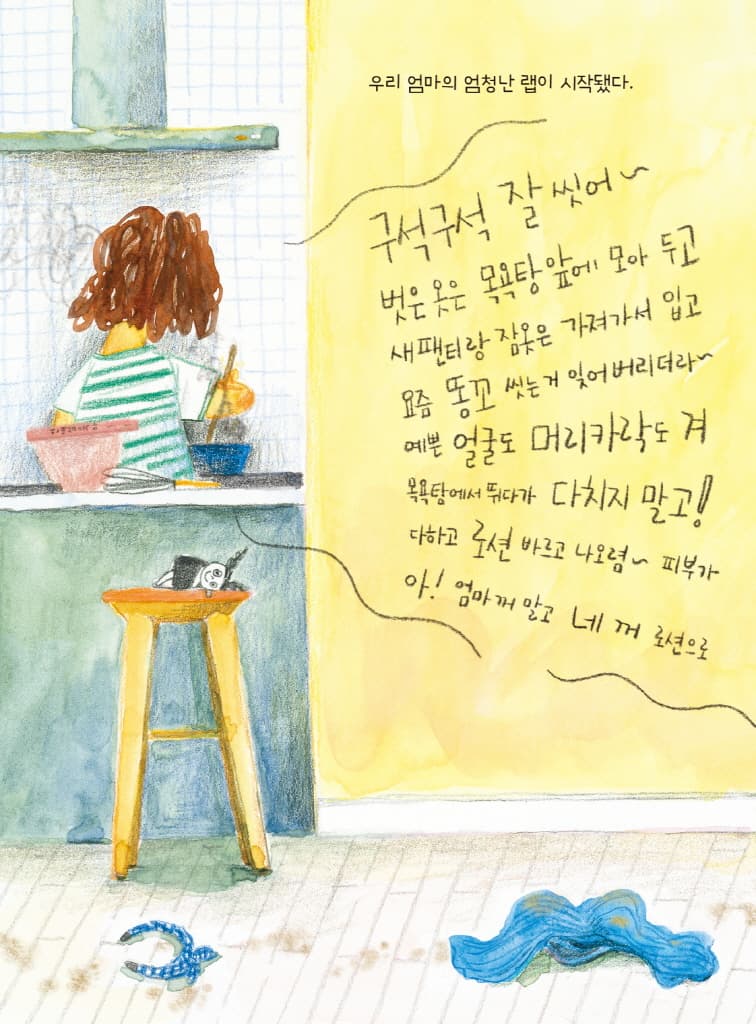 우리 엄마의 엄청난 랩이 시작됐다.
구석구석 잘 씻어~
벗은 옷은 목욕탕 앞에 모아 두고
새 팬티랑 잠옷은 가져가서 입고
요즘 똥꼬 씻는 거 잊어버리더라~
예쁜 얼굴도 머리카락도 겨
목욕탕에서 뛰다가 다치지 말고!
다하고 로션 바르고 나오렴~ 피부가
아! 엄마 꺼 말고 네 꺼 로션으로